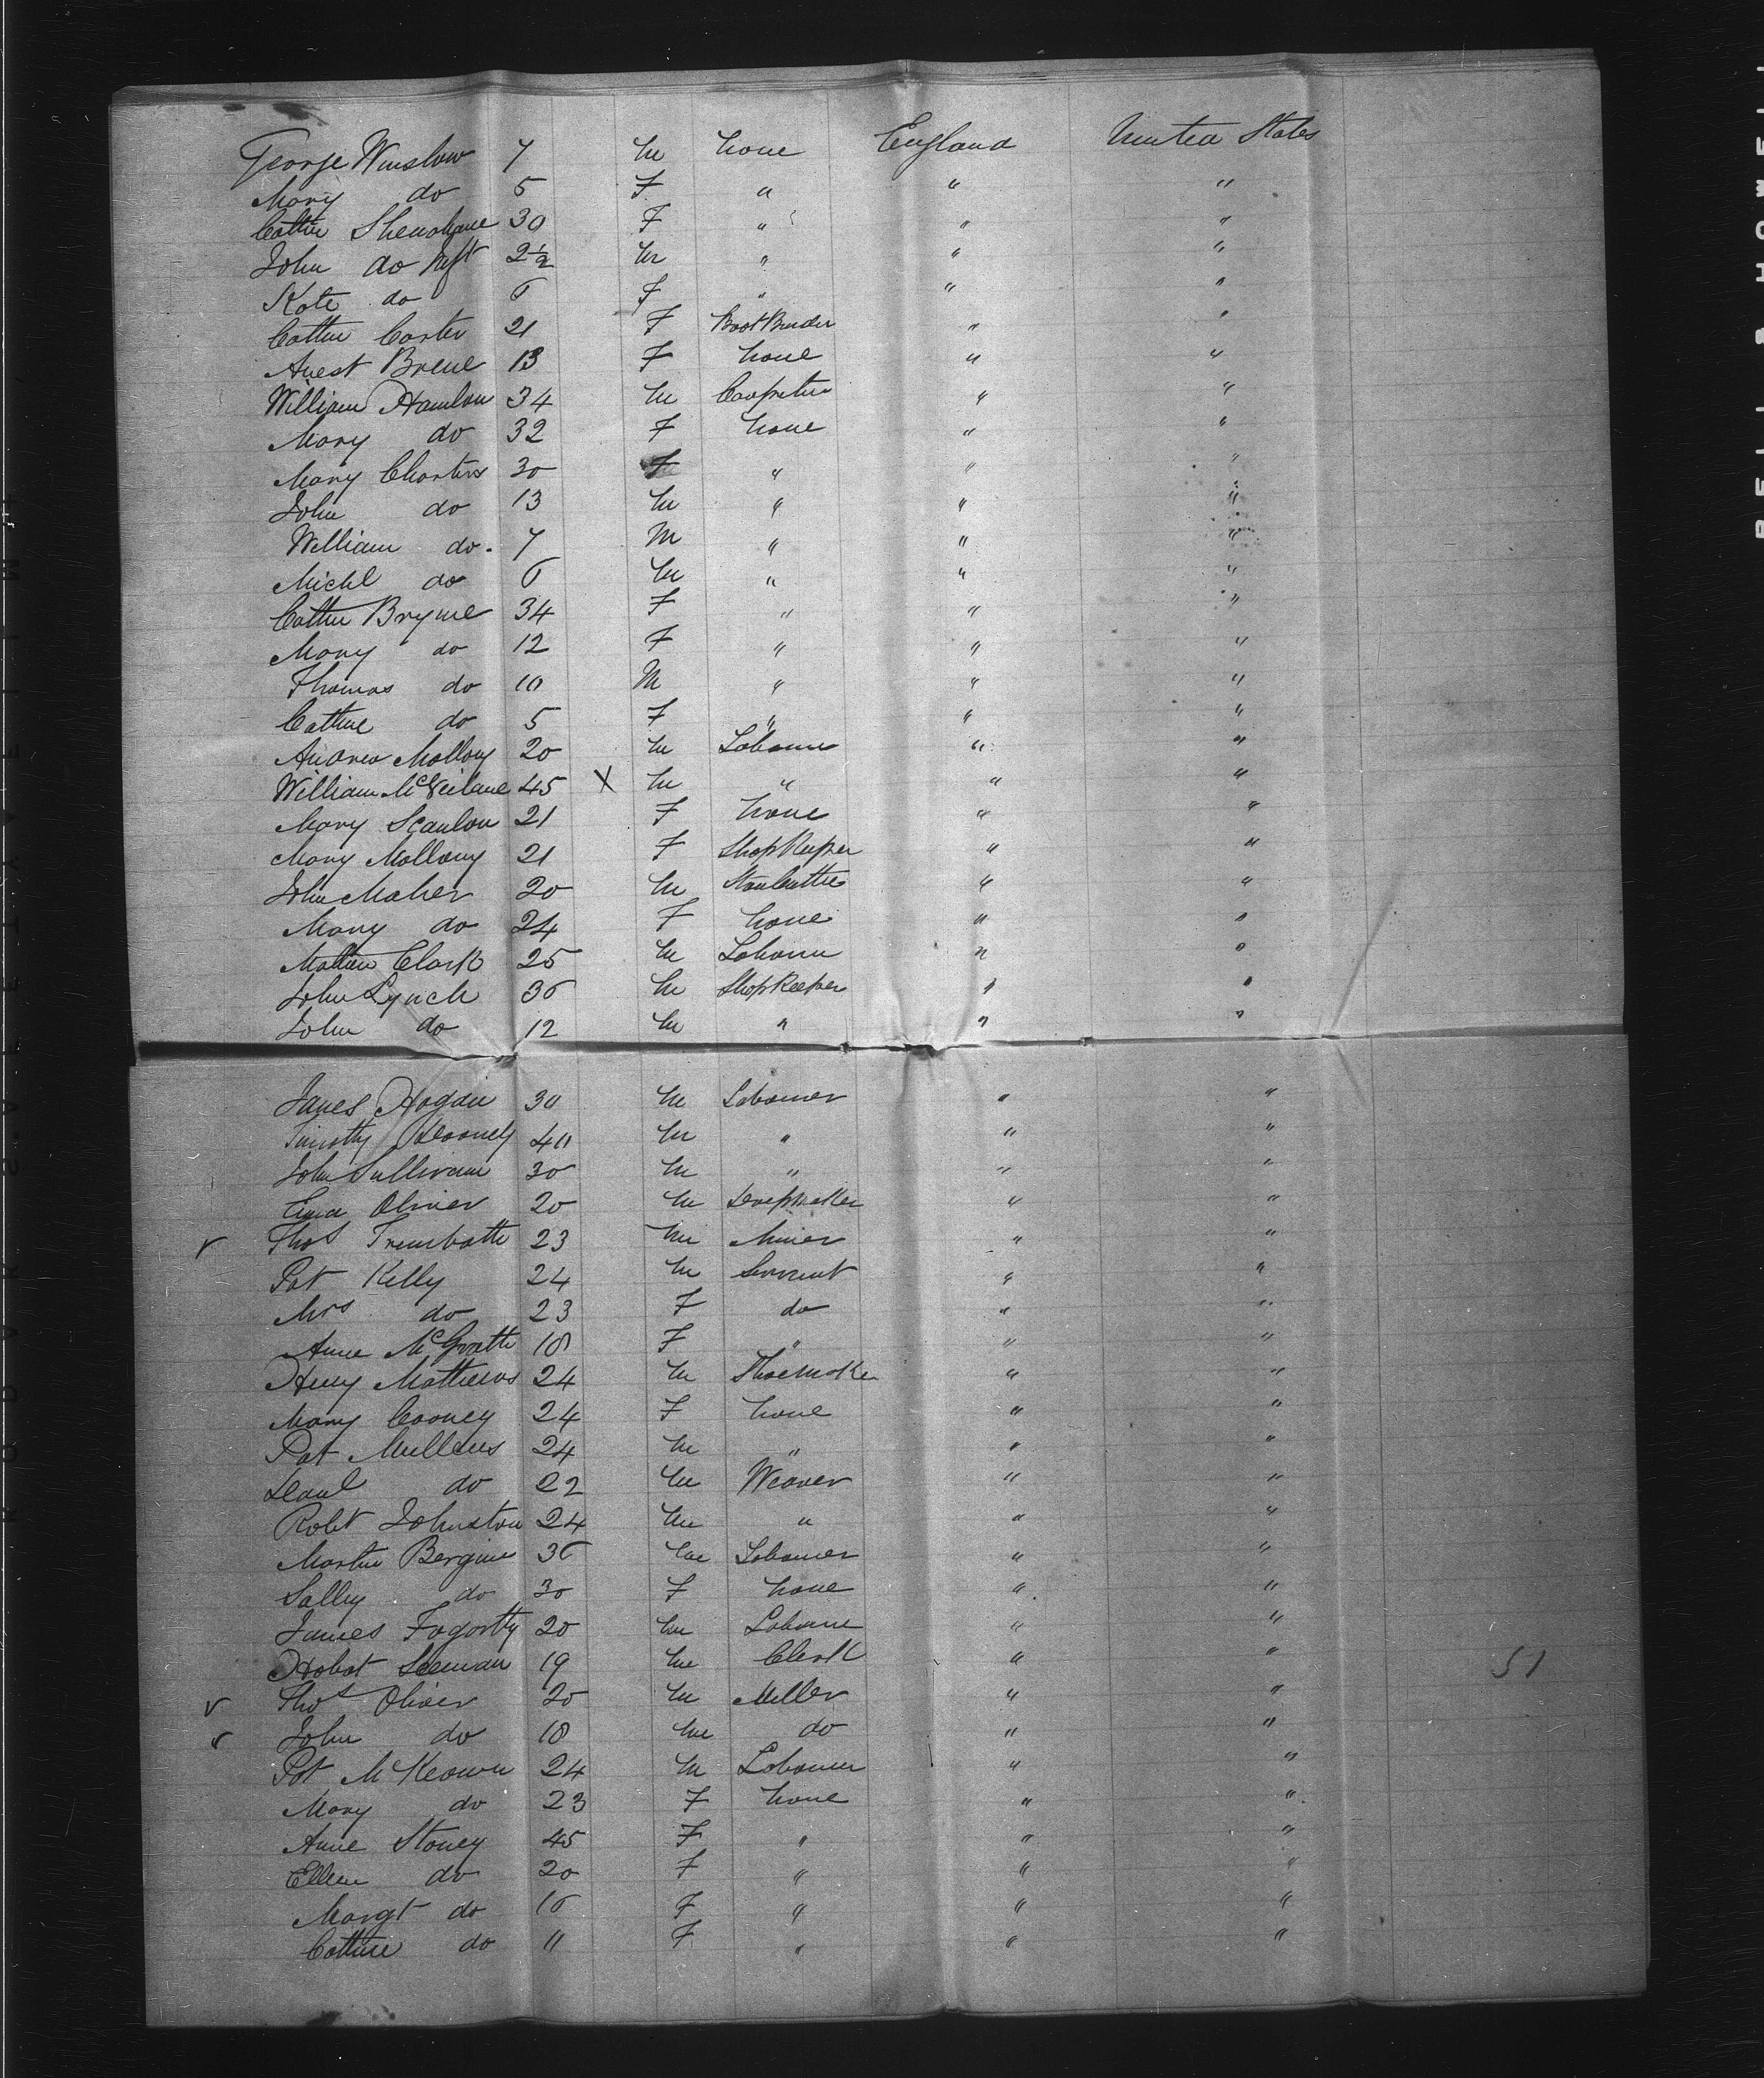 George Winslow 7 M None England United States
Mary do 5 F " " "
Cathne 30 F " " "
John do Inft 2½ M " " "
Kate do 6 F " " "
Cathne Carter 21 F Boot Binder " "
Brene 13 F None " "
William Hanlon 34 M Carpenter " "
Mary do 32 F None " "
Mary Charters 30 F " " "
John do 13 M " " "
William do. 7 M " " "
Michl do 6 M " " "
Cathne Bryne 34 F " " "
Mary do 12 F " " "
Thomas do 10 M " " "
Cathne do 5 F " " "
Andrew Mallony 20 M Labourer " "
William 45 X M " " "
Mary Scanlon 21 F None " "
Mary Mallony 21 F Shopkeeper " "
John Maher 20 M Stonecutter " "
Mary do 24 F None " "
Mathew Clark 25 M Labourer " "
John Lynch 36 M Shopkeeper " "
John do 12 M " " "
James Hogan 30 M Labourer " "
Timothy 40 M " " "
John Sullivan 30 M " " "
Oliver 20 M " "
v Thos Trembath 23 M Miner " "
Pat Kelly 24 M Servant " "
Mrs do 23 F do " "
Anne McGrath 18 F " " "
Henry Mathews 24 M Shoemaker " "
Mary Cooney 24 F None " "
Pat Mullens 24 M " " "
do 22 M Weaver " "
Robt Johnston 24 M " " "
Martin Bergin 36 M Labourer " "
Salley do 30 F None " "
James Fogartty 20 M Labourer " "
19 M Clerk " " 51
v Thos Oliver 20 M Miller " "
v John do 18 M do " "
Pat McKeown 24 M Labourer " "
Mary do 23 F None " "
Anne Stoney 45 F " " "
Ellen do 20 F " " "
Margt do 16 F " " "
Cathne do 11 F " " "